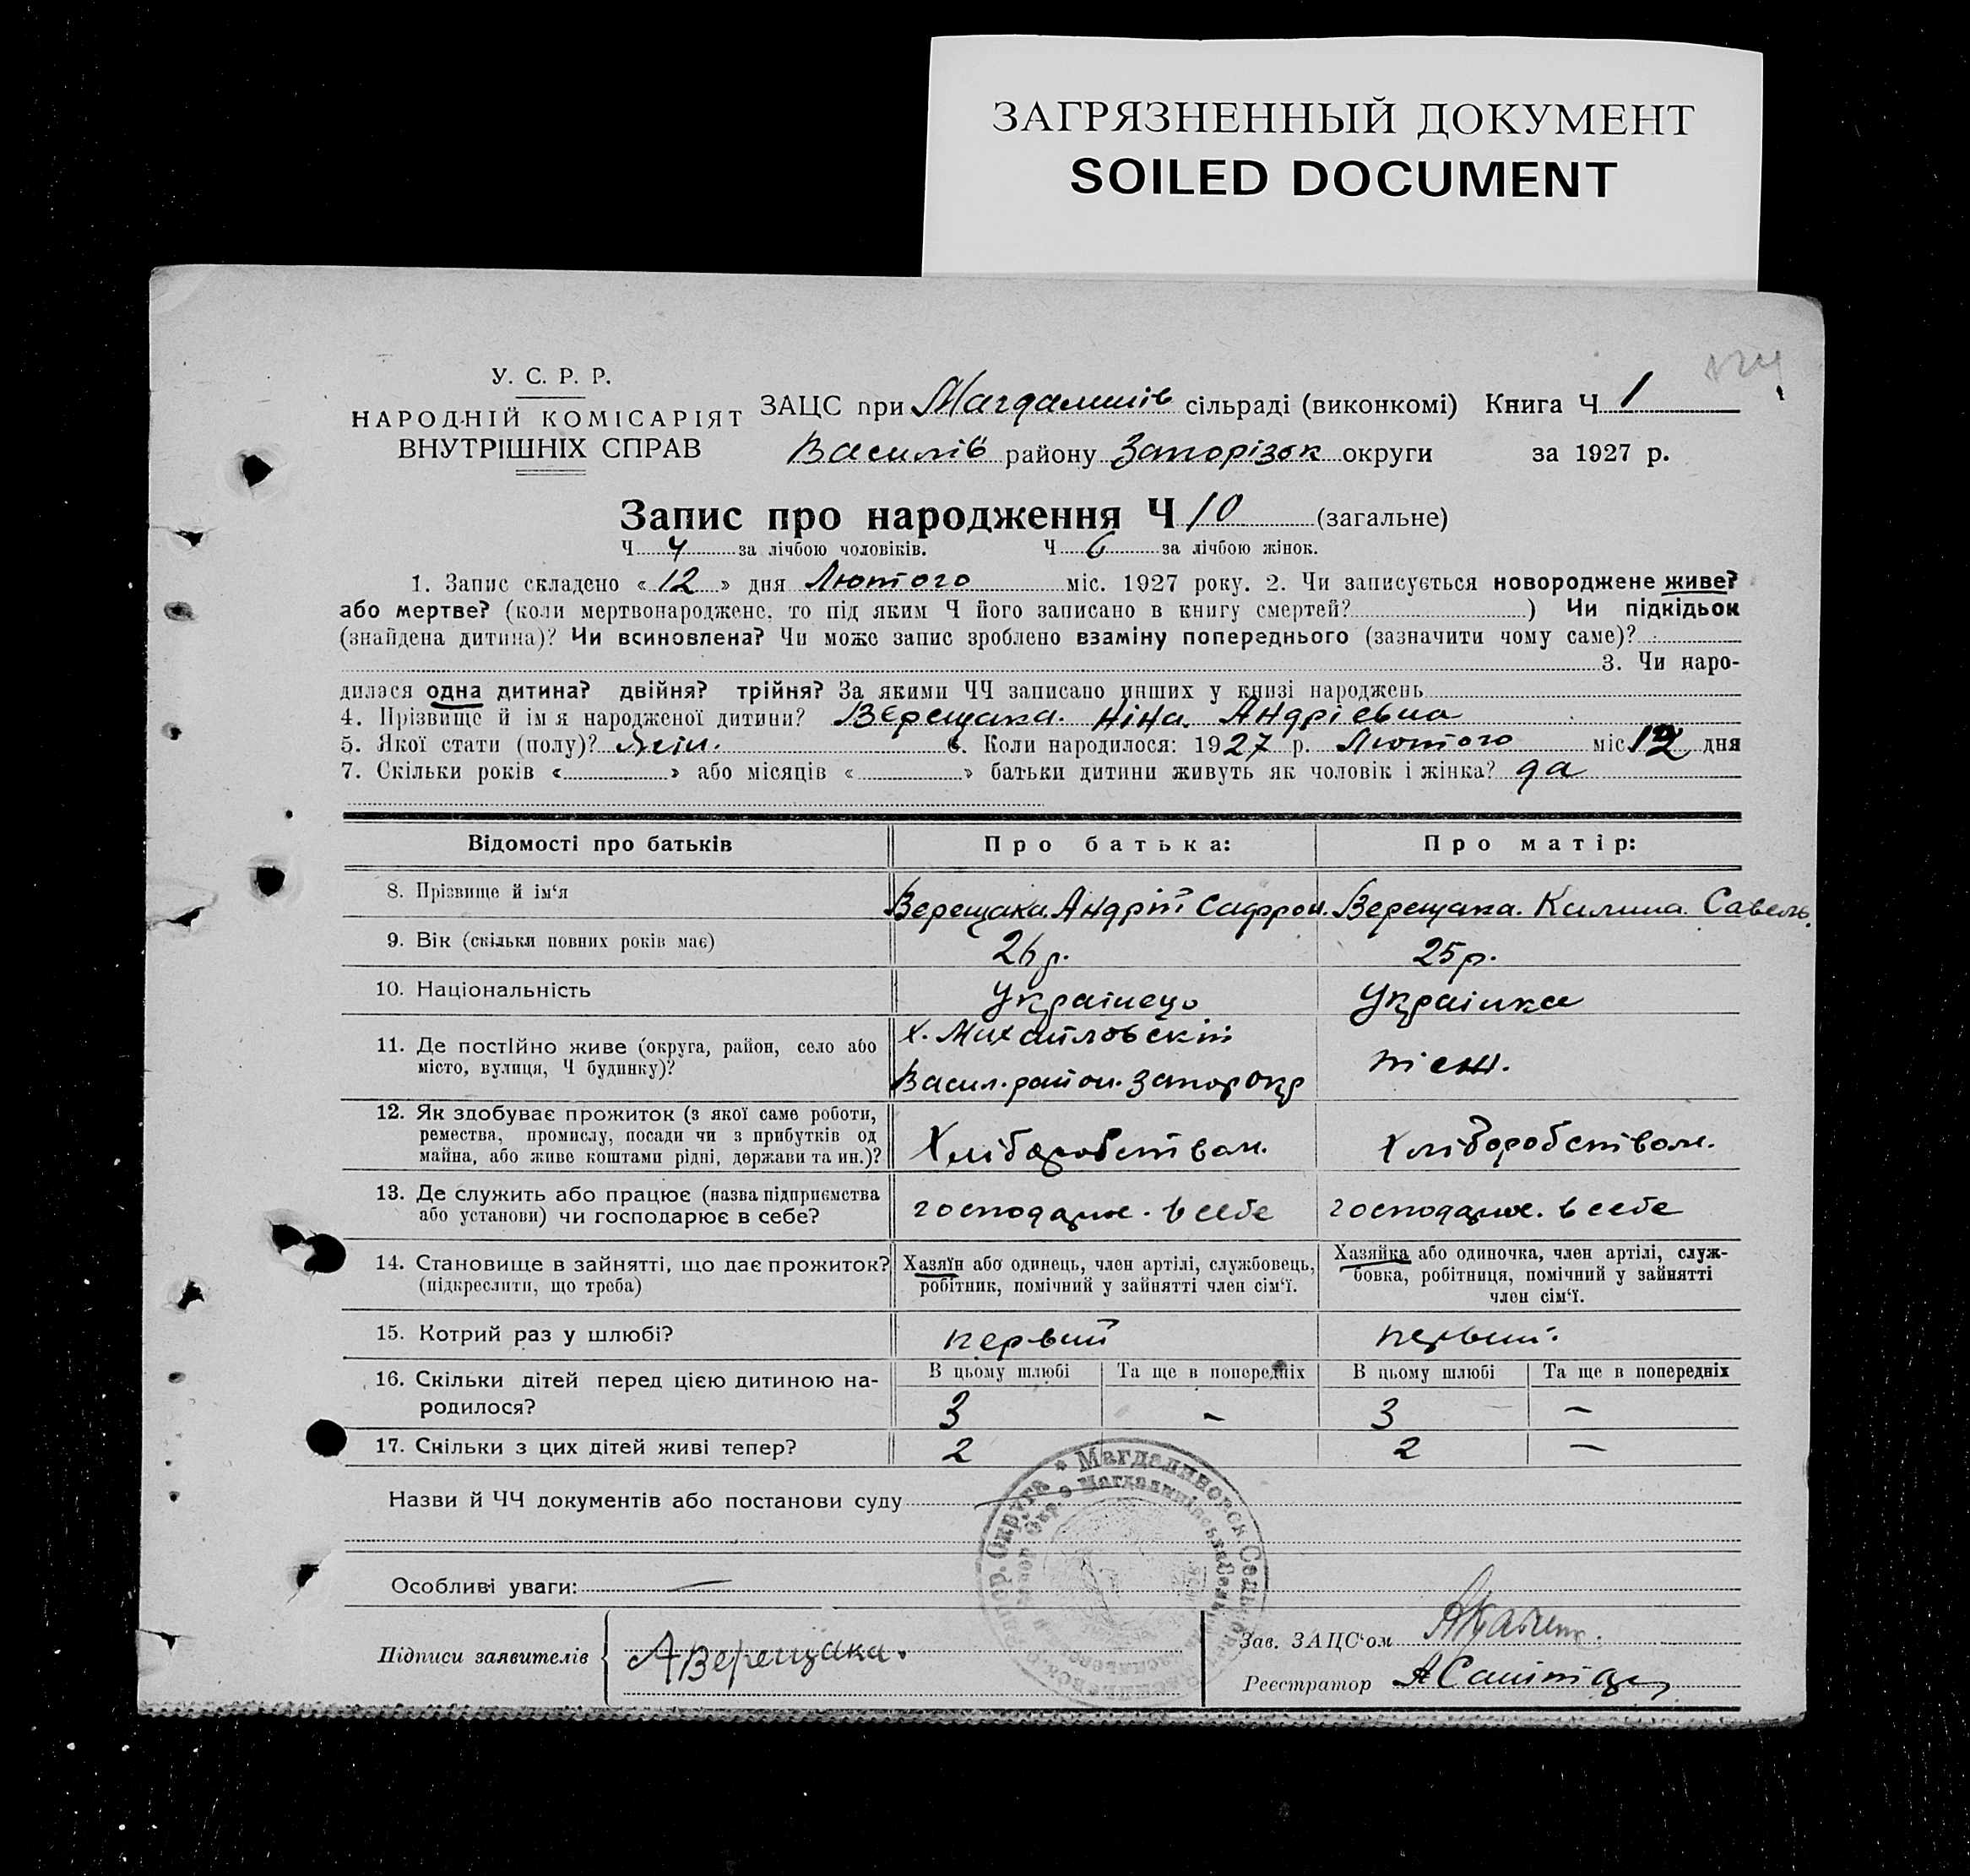 ЗАГРЯЗНЕННЫЙ ДОКУМЕНТ
SOILED DOCUMENT
У. С. Р. Р.
НАРОДНІЙ КОМІСАРІЯТ
ВНУТРІШНІХ СПРАВ
ЗАЦС при Магдалинів сільраді (виконкомі) Книга Ч 1
Василів району Запорізьк округи за 1927 р.
Запис про народження Ч 10 (загальне)
Ч 4 за лічбою чоловіків. Ч 6 за лічбою жінок.
1. Запис складено «12» дня Лютого міс. 1927 року. 2. Чи записується новороджене живе?
або мертве? (коли мертвонароджене, то під яким Ч його записано в книгу смертей?) Чи підкідьок
(знайдена дитина)? Чи всиновлена? Чи може запис зроблено взаміну попереднього (зазначити чому саме)?
3. Чи наро-
дилася одна дитина? двійня? трійня? За якими ЧЧ записано инших у книзі народжень
4. Прізвище й імя народженої дитини? Верещака. Ніна. Андрієвна
5. Якої стати (полу)? жін. 6. Коли народилося: 1927 р. Лютого міс 12 дня
7. Скільки років « » або місяців « » батьки дитини живуть як чоловік і жінка? да
Відомості про батьків Про батька: Про матір:
8. Прізвище й ім'я Верещака. Андрій Сафрон. Верещака. Килина. Савель.
9. Вік (скільки повних років має) 26 р. 25 р.
10. Національність Українець Українка
11. Де постійно живе (округа, район, село або
місто, вулиця, Ч будинку)?
х. Михайловский
Васил. район. Запор Окр
тіеж.
12. Як здобуває прожиток (з якої саме роботи,
ремества, промислу, посади чи з прибутків од
майна, або живе коштами рідні, держави та ин.)?
Хліборобством. Хліборобством.
13. Де служить або працює (назва підприємства
або установи) чи господарює в себе?
господарює. в себе господарює. в себе
14. Становище в зайнятті, що дає прожиток?
(підкреслити, що треба)
Хазяїн або одинець, член артілі, службовець,
робітник, помічний у зайнятті член сім'ї.
Хазяйка або одиночка, член артілі, служ-
бовка, робітниця, помічний у зайнятті
член сім'ї.
15. Котрий раз у шлюбі? первий первий.
16. Скільки дітей перед цією дитиною на-
родилося?
В цьому шлюбі Та ще в попередніх В цьому шлюбі Та ще в попередніх
3 – 3 –
17. Скільки з цих дітей живі тепер? 2 2 –
Назви й ЧЧ документів або постанови суду
Особливі уваги: –
Підписи заявителів АВерещака.
Зав. ЗАЦС'ом
Реєстратор